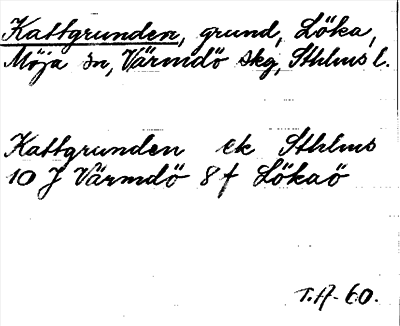 Kattgrunden, grund, Löka,
Möja sn, Värmdö skg, Sthlms l.
Kattgrunden ek Sthlms
10 J Värmdö 8 f Lökaö
T.A. 60.